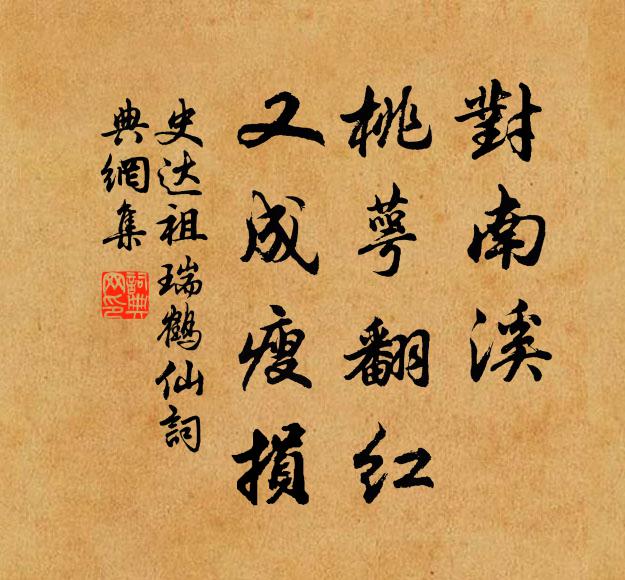 對南溪
桃萼翻红
又成瘦損
史达祖瑞鶴仙詞
典網集
詞典网印